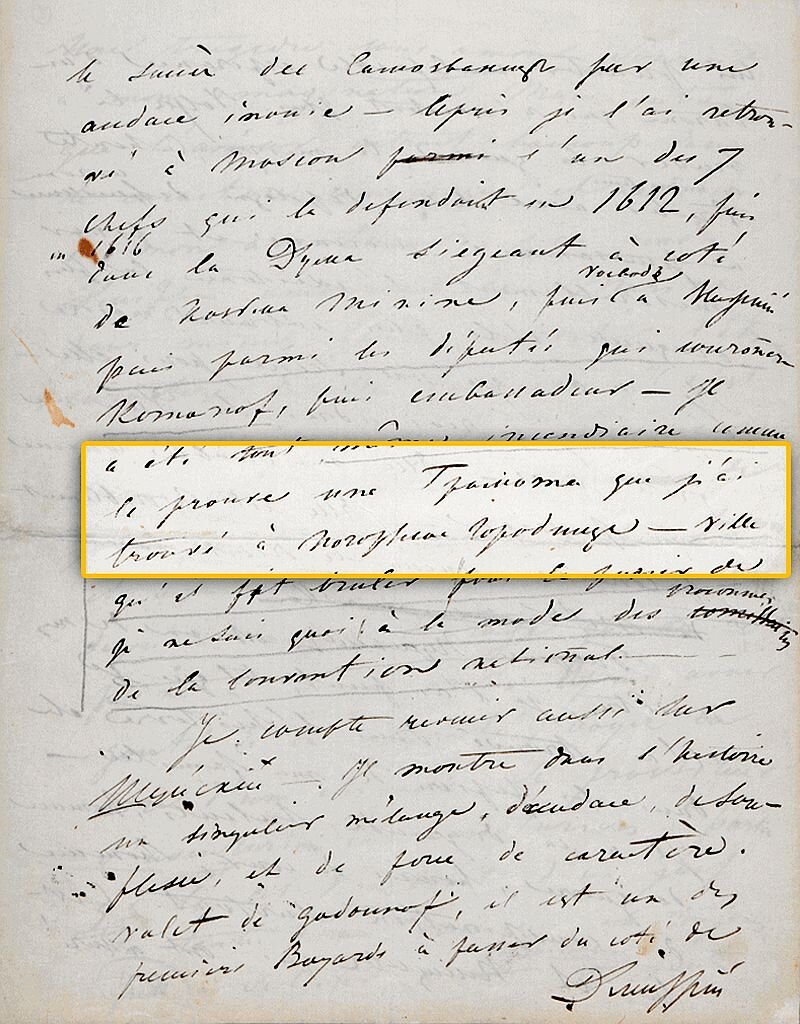 le            des Самозванцев par une
audace inouie — Après je l'ai retrou-
vé à Moscou parmi l'un des 7
chefs qui le defendoit en 1612, puis
en 1616
dans la Дума siegeant à coté
voevode
de Kosma Minine, puis      à
puis parmi les députés qui couronèr-
Romanof, puis embassadeur — Il
a été tout même incendiaire comme
le prouve une Грамота que j'ai
trouvé à            Городище — ville
qu'il fit bruler pour le punir de
je ne sais quoi, à la mode des
de la Convention national. —
Je compte revenir aussi sur
           — Il montre dans l'histoire
un singulier mélange, d'audace, de sou-
plesse, et de force de caractère.
valet de Godounof, il est un des
premiers Boyards à passer du coté de